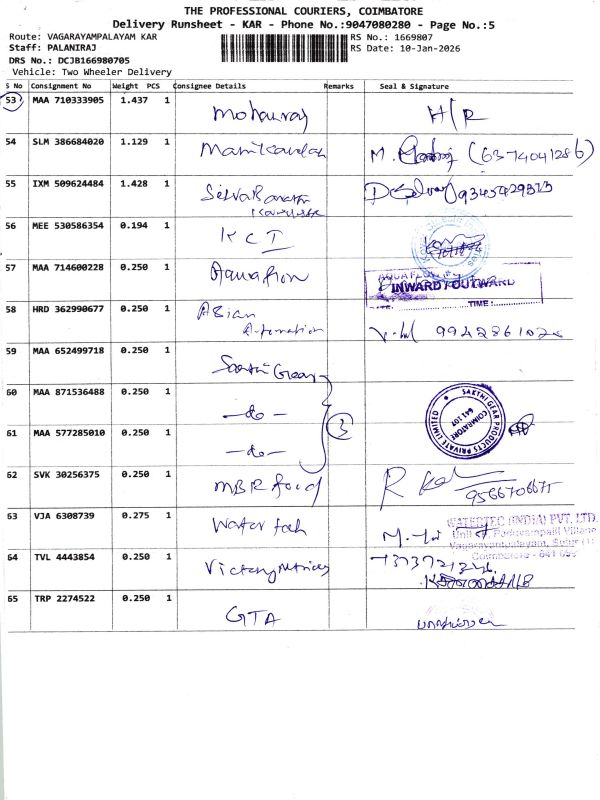 THE PROFESSIONAL COURIERS, COIMBATORE
Delivery Runsheet - KAR - Phone No.:9047080280 - Page No.:5
Route: VAGARAYAMPALAYAM KAR
RS No.: 1669807
Staff: PALANIRAJ
RS Date: 10-Jan-2026
DRS No.: DCJB166980705
Vehicle: Two Wheeler Delivery
S No Consignment No Weight PCS Consignee Details Remarks Seal & Signature
53 MAA 710333905 1.437 1 Mohanraj H/R
54 SLM 386684020 1.129 1 Manikandan M. (6374041286)
55 IXM 509624484 1.428 1
56 MEE 530586354 0.194 1 KCT
57 MAA 714600228 0.250 1 Aquaflow AQUAFLOW
INWARD / OUTWARD
TIME:
58 HRD 362990677 0.250 1 Asian
Automation
59 MAA 652499718 0.250 1 Sakthi Gear
60 MAA 871536488 0.250 1 -do- 3 SAKTHI GEAR PRODUCTS PRIVATE LIMITED
COIMBATORE
641 107
61 MAA 577285010 0.250 1 -do-
62 SVK 30256375 0.250 1 MBR food R
63 VJA 6308739 0.275 1 Water tech WATERTEC (INDIA) PVT. LTD.
Coimbatore - 641
64 TVL 4443854 0.250 1 Victory
65 TRP 2274522 0.250 1 GTA